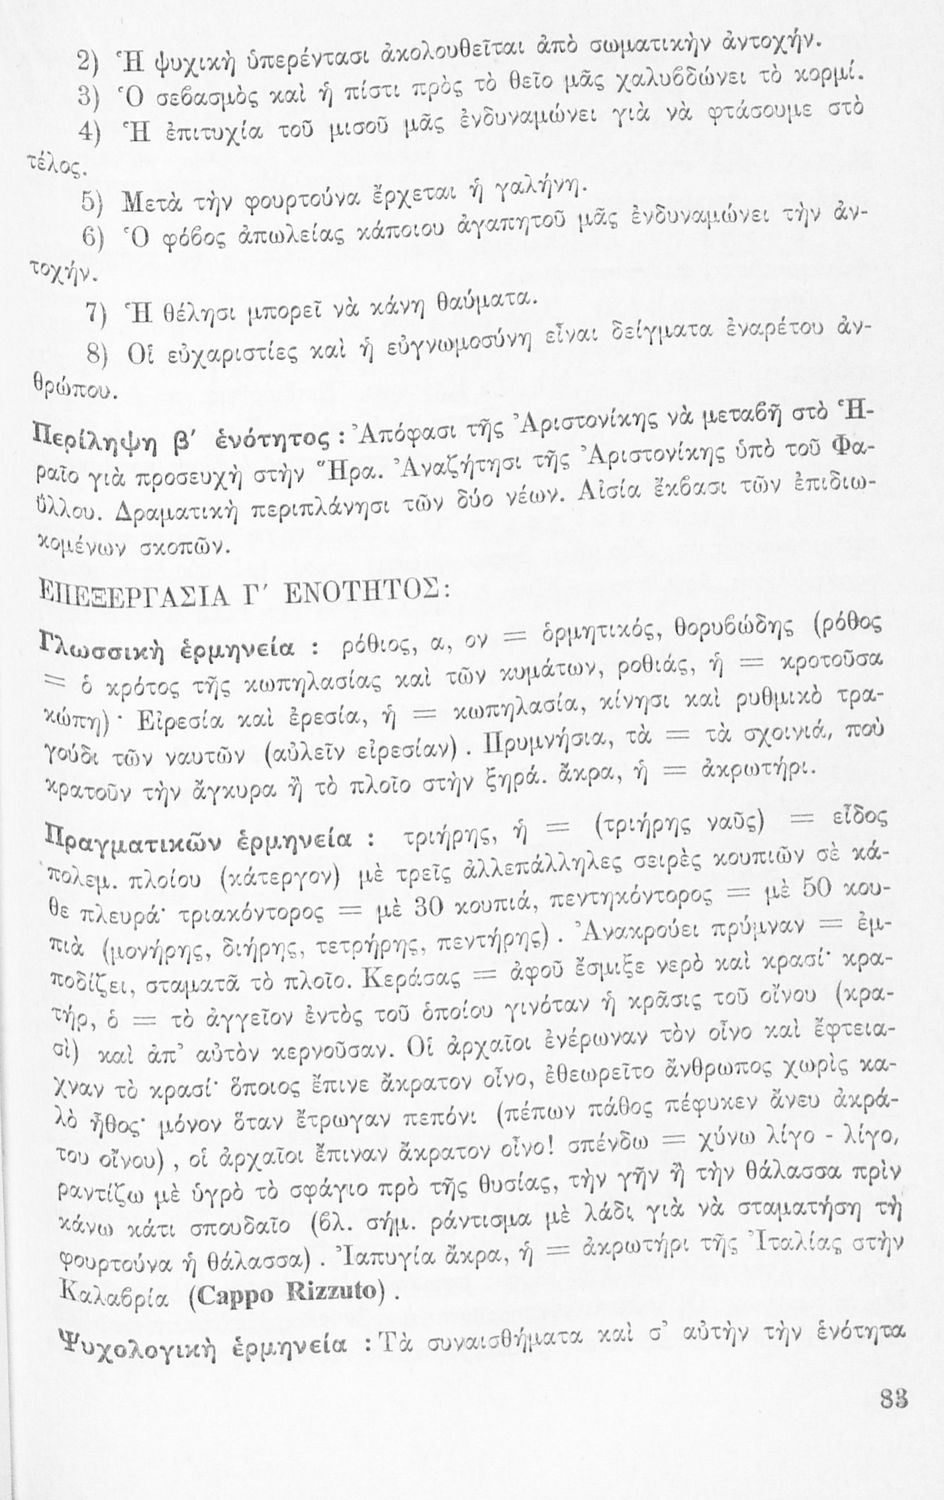 2) Ἡ ψυχικὴ ὑπερέντασι ἀκολουθεῖται ἀπὸ σωματικὴν ἀντοχήν.
3) Ὁ σεβασμὸς καὶ ἡ πίστι πρὸς τὸ θεῖο μᾶς χαλυβδώνει τὸ κορμί.
4) Ἡ ἐπιτυχία τοῦ μισοῦ μᾶς ἐνδυναμώνει γιὰ νὰ φτάσουμε στὸ
τέλος.
5) Μετὰ τὴν φουρτούνα ἔρχεται ἡ γαλήνη.
6) Ὁ φόβος ἀπωλείας κάποιου ἀγαπητοῦ μᾶς ἐνδυναμώνει τὴν ἀν-
τοχήν.
7) Ἡ θέλησι μπορεῖ νὰ κάνη θαύματα.
8) Οἱ εὐχαριστίες καὶ ἡ εὐγνωμοσύνη εἶναι δείγματα ἐναρέτου ἀν-
θρώπου.
Περίληψη β' ἑνότητος : Ἀπόφασι τῆς Ἀριστονίκης νὰ μεταβῆ στὸ Ἡ-
ραῖο γιὰ προσευχὴ στὴν Ἥρα. Ἀναζήτησι τῆς Ἀριστονίκης ὑπὸ τοῦ Φα-
ΰλλου. Δραματικὴ περιπλάνησι τῶν δύο νέων. Αἰσία ἔκβασι τῶν ἐπιδιω-
κομένων σκοπῶν.
ΕΠΕΞΕΡΓΑΣΙΑ Γ' ΕΝΟΤΗΤΟΣ:
Γλωσσικὴ ἑρμηνεία : ρόθιος, α, ον = ὁρμητικός, θορυβώδης (ρόθος
= ὁ κρότος τῆς κωπηλασίας καὶ τῶν κυμάτων, ροθιάς, ἡ = κροτοῦσα
κώπη)· Εἰρεσία καὶ ἐρεσία, ἡ = κωπηλασία, κίνησι καὶ ρυθμικὸ τρα-
γούδι τῶν ναυτῶν (αὐλεῖν εἰρεσίαν). Πρυμνήσια, τὰ = τὰ σχοινιά, ποὺ
κρατοῦν τὴν ἄγκυρα ἢ τὸ πλοῖο στὴν ξηρά. ἄκρα, ἡ = ἀκρωτήρι.
Πραγματικῶν ἑρμηνεία : τριήρης, ἡ = (τριήρης ναῦς) = εἶδος
πολεμ. πλοίου (κάτεργον) μὲ τρεῖς ἀλλεπάλληλες σειρὲς κουπιῶν σὲ κά-
θε πλευρά· τριακόντορος = μὲ 30 κουπιά, πεντηκόντορος = μὲ 50 κου-
πιὰ (μονήρης, διήρης, τετρήρης, πεντήρης). Ἀνακρούει πρύμναν = ἐμ-
ποδίζει, σταματᾶ τὸ πλοῖο. Κεράσας = ἀφοῦ ἔσμιξε νερὸ καὶ κρασί· κρα-
τήρ, ὁ = τὸ ἀγγεῖον ἐντὸς τοῦ ὁποίου γινόταν ἡ κρᾶσις τοῦ οἴνου (κρα-
σὶ) καὶ ἀπ' αὐτὸν κερνοῦσαν. Οἱ ἀρχαῖοι ἐνέρωναν τὸν οἶνο καὶ ἔφτεια-
χναν τὸ κρασί· ὅποιος ἔπινε ἄκρατον οἶνο, ἐθεωρεῖτο ἄνθρωπος χωρὶς κα-
λὸ ἦθος· μόνον ὅταν ἔτρωγαν πεπόνι (πέπων πάθος πέφυκεν ἄνευ ἀκρά-
του οἴνου), οἱ ἀρχαῖοι ἔπιναν ἄκρατον οἶνο! σπένδω = χύνω λίγο - λίγο,
ραντίζω μὲ ὑγρὸ τὸ σφάγιο πρὸ τῆς θυσίας, τὴν γῆν ἢ τὴν θάλασσα πρὶν
κάνω κάτι σπουδαῖο (βλ. σήμ. ράντισμα μὲ λάδι γιὰ νὰ σταματήση τὴ
φουρτούνα ἡ θάλασσα). Ἰαπυγία ἄκρα, ἡ = ἀκρωτήρι τῆς Ἰταλίας στὴν
Καλαβρία (Cappo Rizzuto).
Ψυχολογικὴ ἑρμηνεία : Τὰ συναισθήματα καὶ σ' αὐτὴν τὴν ἑνότητα
83